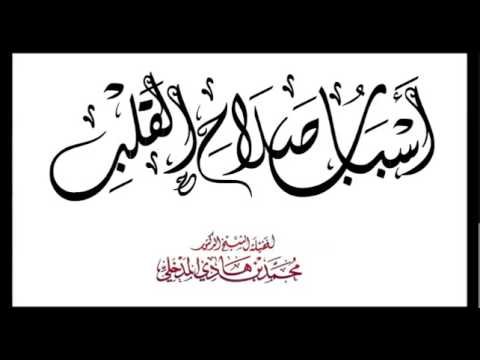 أَسْبَابُ صَلَاحِ الْقَلْبِ
لفضيلة الشيخ الدكتور
محمد بن هادي المدخلي